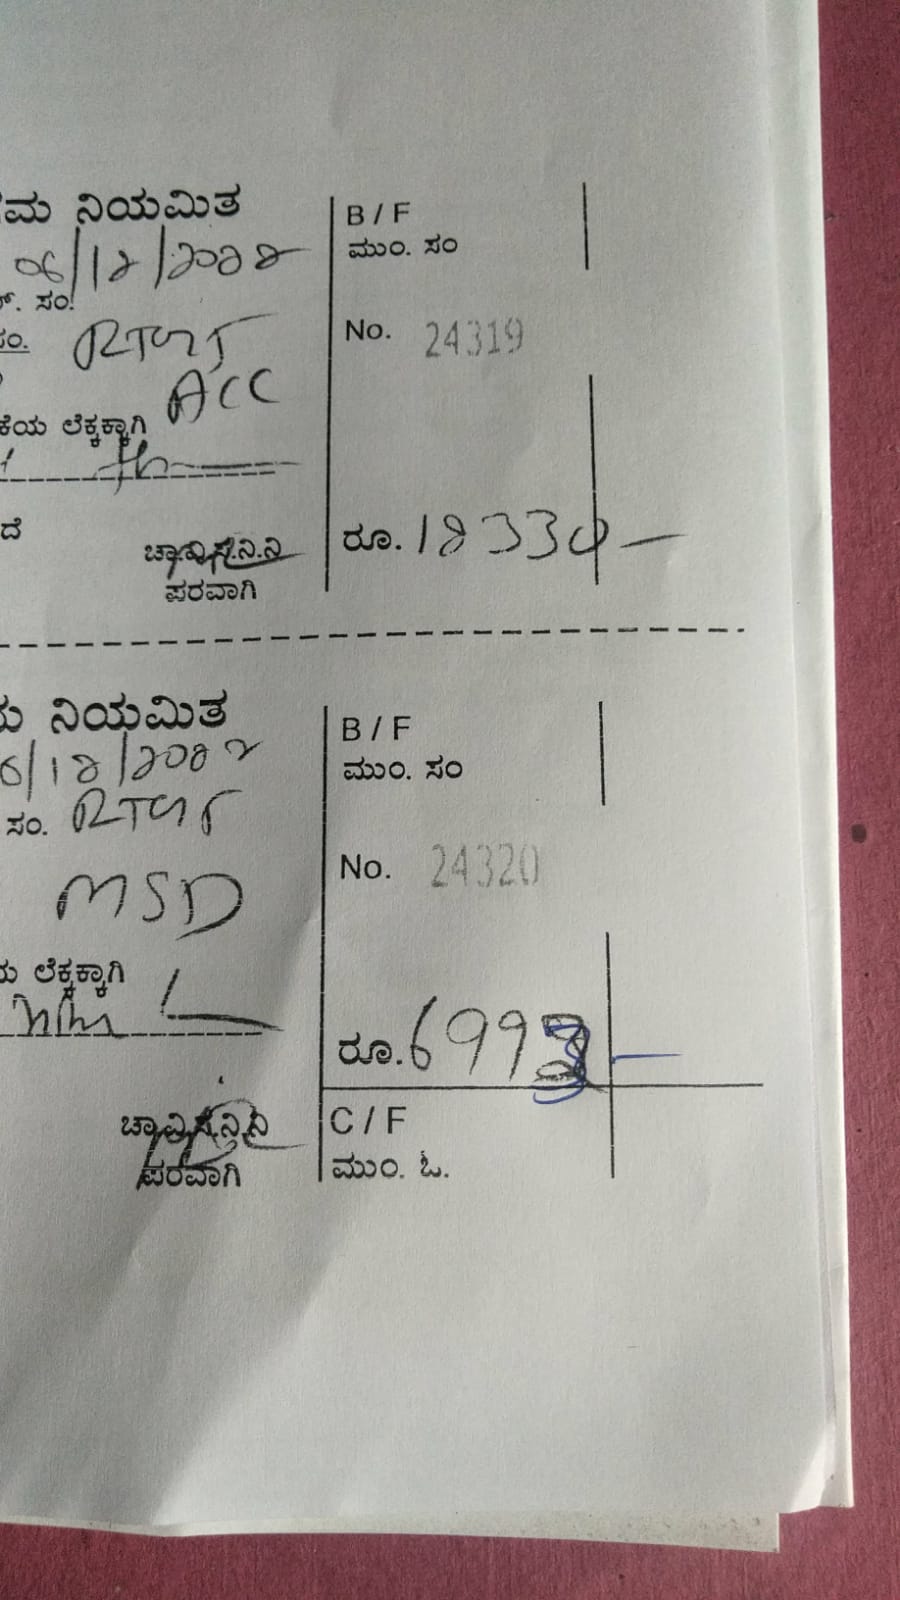 ನಿಯಮಿತ
06/12/2022
ಸಂ.
ಸಂ. RTGS
ACC
ಲೆಕ್ಕಕ್ಕಾಗಿ
ಚಾ.ವಿ.ಸ.ನಿ.ನಿ
ಪರವಾಗಿ
B / F
ಮುಂ. ಸಂ
No. 24319
ರೂ. 18330 —
ನಿಯಮಿತ
6/12/2022
ಸಂ. RTGS
MSD
ಲೆಕ್ಕಕ್ಕಾಗಿ
ಚಾ.ವಿ.ಸ.ನಿ.ನಿ
ಪರವಾಗಿ
B / F
ಮುಂ. ಸಂ
No. 24320
ರೂ. 6993 —
C / F
ಮುಂ. ಓ.